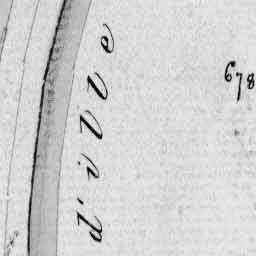 d'ille
678